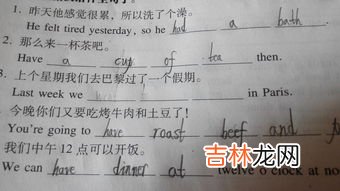 1. 昨天他感觉很累,所以洗了个澡。
He felt tired yesterday, so he had a bath.
2. 那么来一杯茶吧。
Have a cup of tea then.
3. 上个星期我们去巴黎过了一个假期。
Last week we in Paris.
今晚你们又要吃烤牛肉和土豆了!
You're going to have roast beef and
我们中午12点可以开饭。
We can have dinner at twelve o'clock at no
吉林龙网